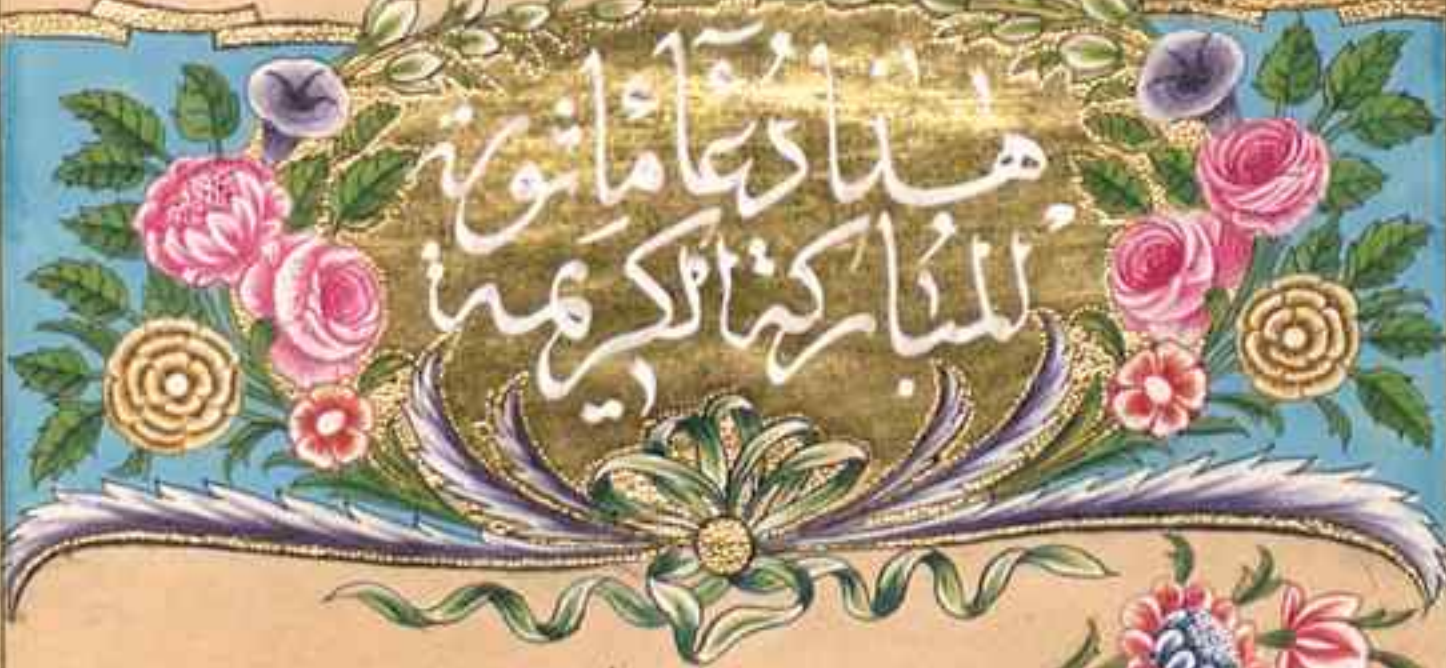 هٰذَا دُعَآءُ مَاْثُورَة
الْمُبَارَكَة الْكَرِيمَة